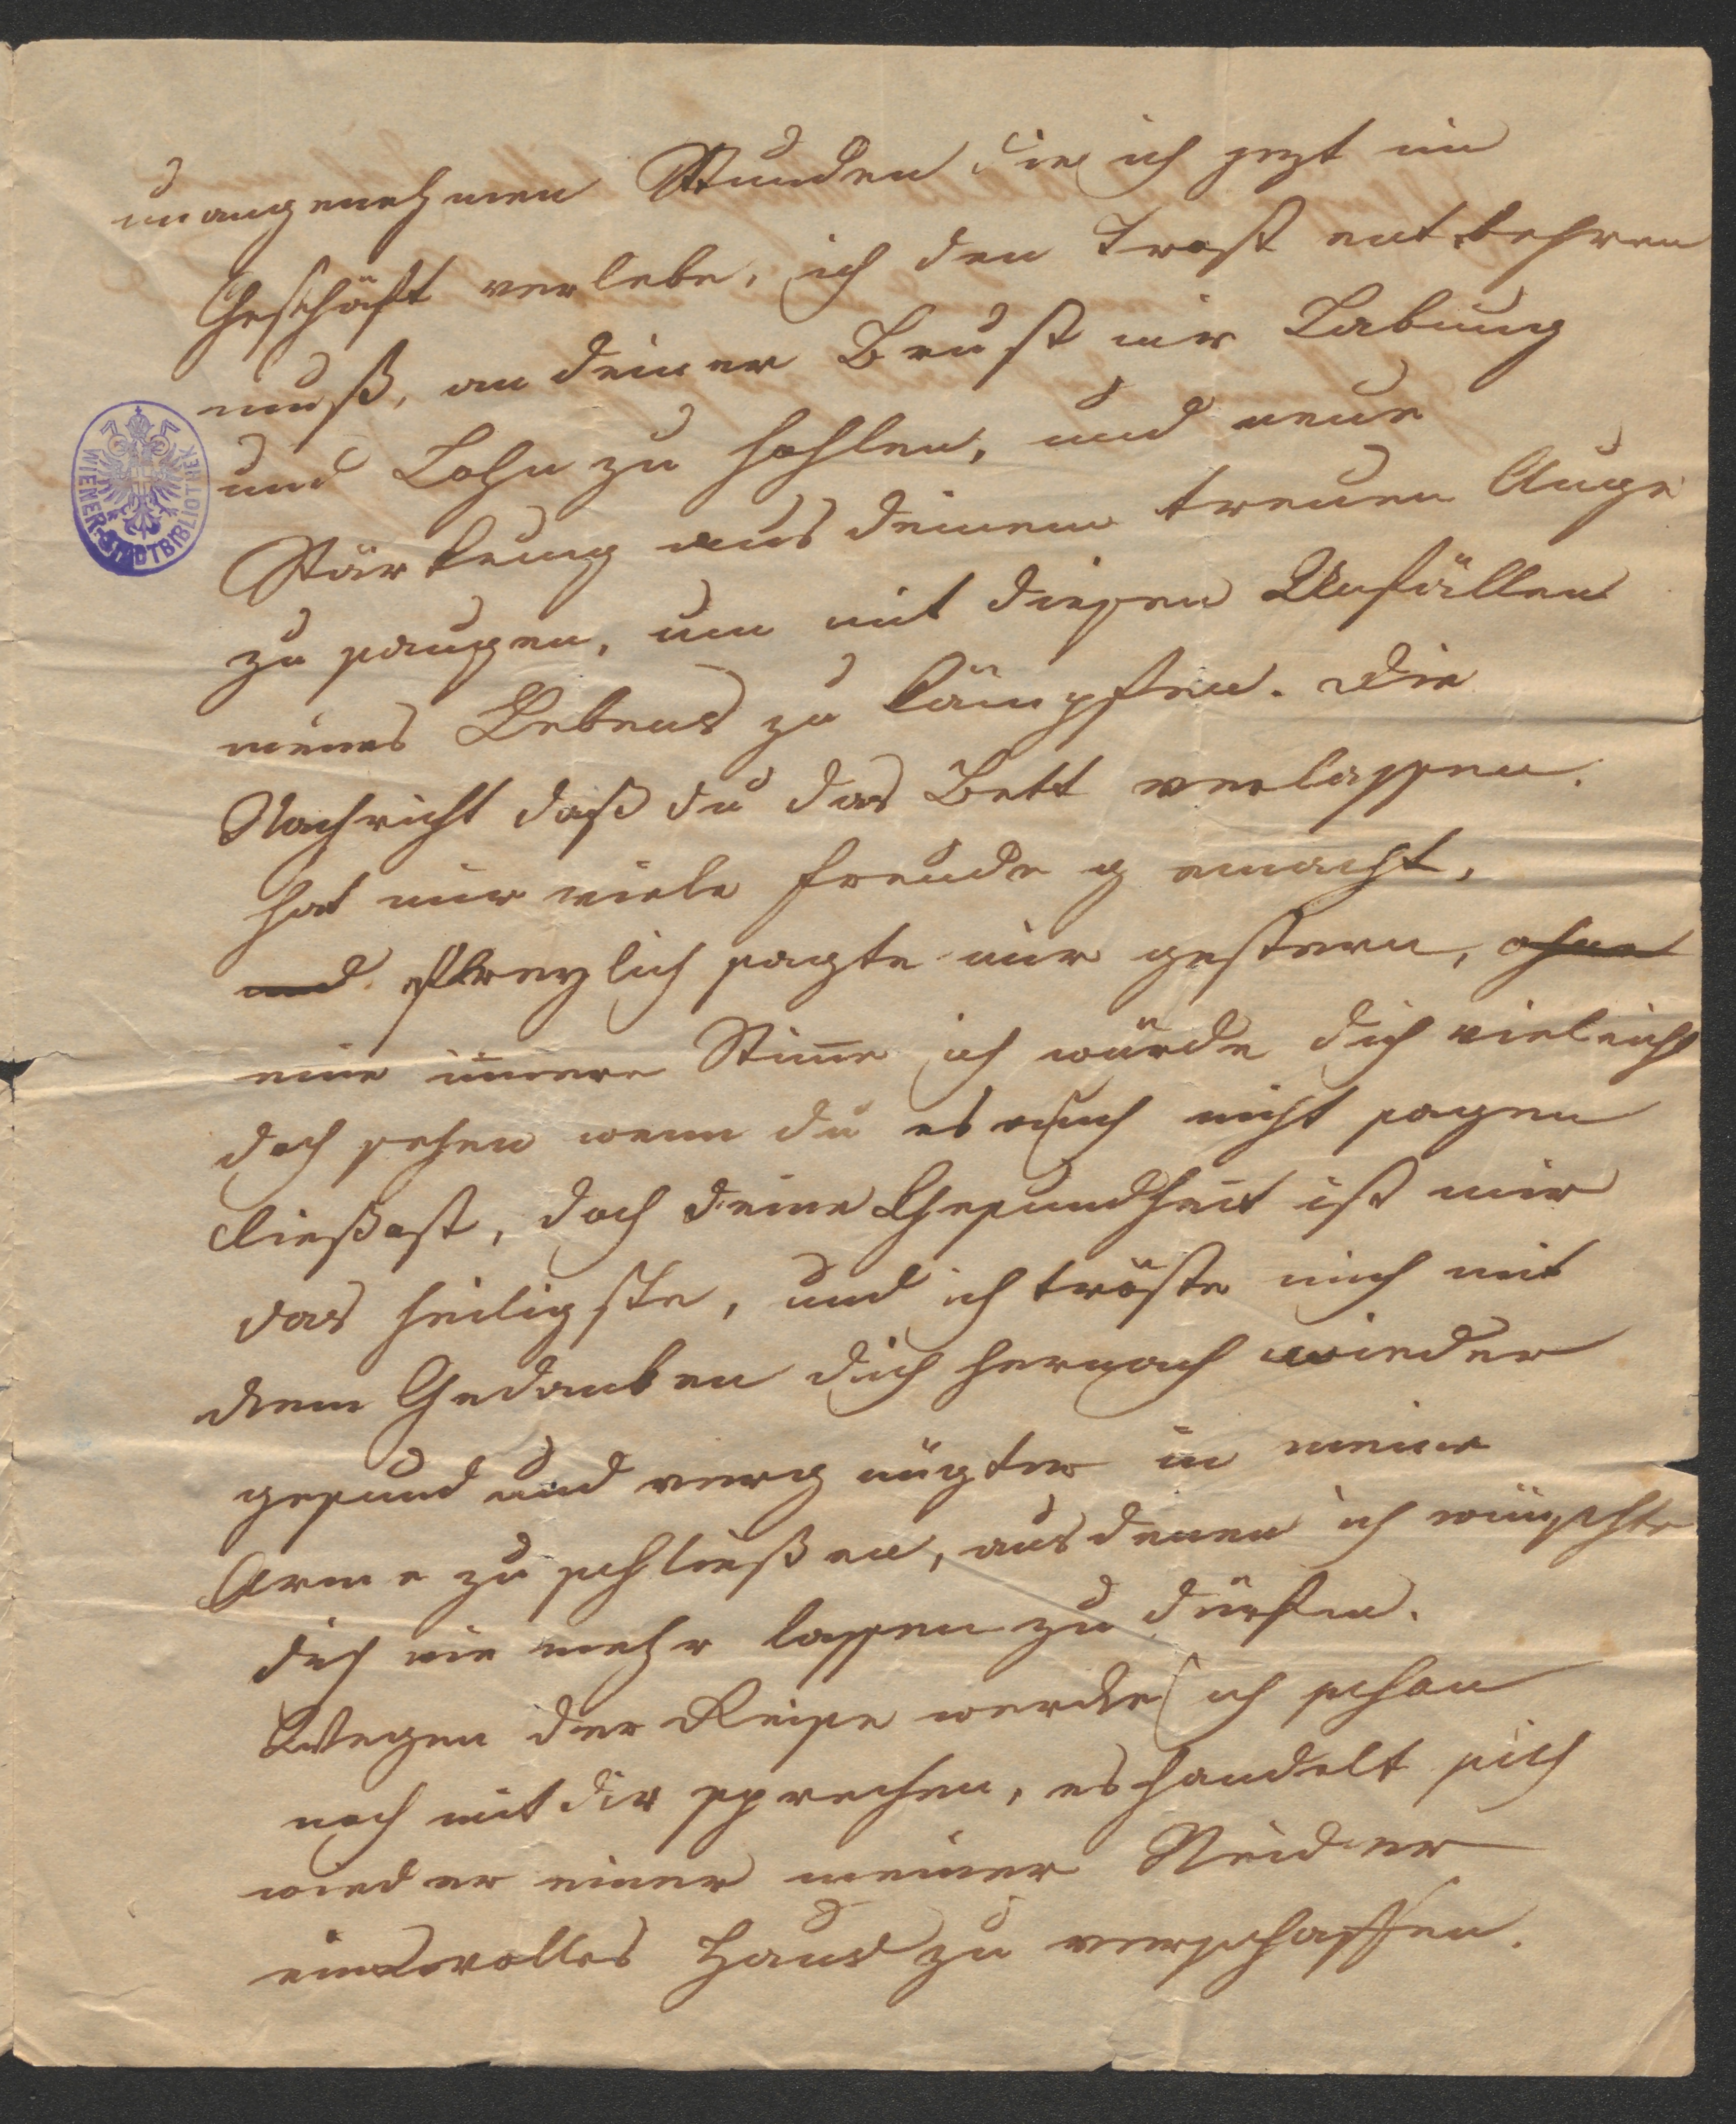 unangenehmen Stunden die ich jezt im
Geschäft verlebe, ich den Trost entbehren
muß, an deiner Brust mir Labung
und Lohn zu hohlen, und neue
Stärkung aus deinem treuen Auge
zu saugen, um mit diesen Unfällen
meines Lebens zu kämpfen. Die
Nachricht daß du das Bett verlassen.
hat mir viele Freude gemacht,
und freylich sagte mir gestern, ohne
eine iñere Stim̄e ich würde dich vieleicht
doch sehen wenn du es auch nicht sagen
ließest, doch deine Gesundheit ist mir
das heiligste, und ich tröste mich mit
dem Gedanken dich hernach wieder
gesund und vergnügter in meine
Arme zu schließen, aus denen ich wünschte
dich nie mehr lassen zu dürfen.
Wegen der Reise werde ich schon
noch mit dir sprechen, es handelt sich
wieder einer meiner Neider
ein volles Haus zu verschaffen.
WIENER-STADTBIBLIOTHEK